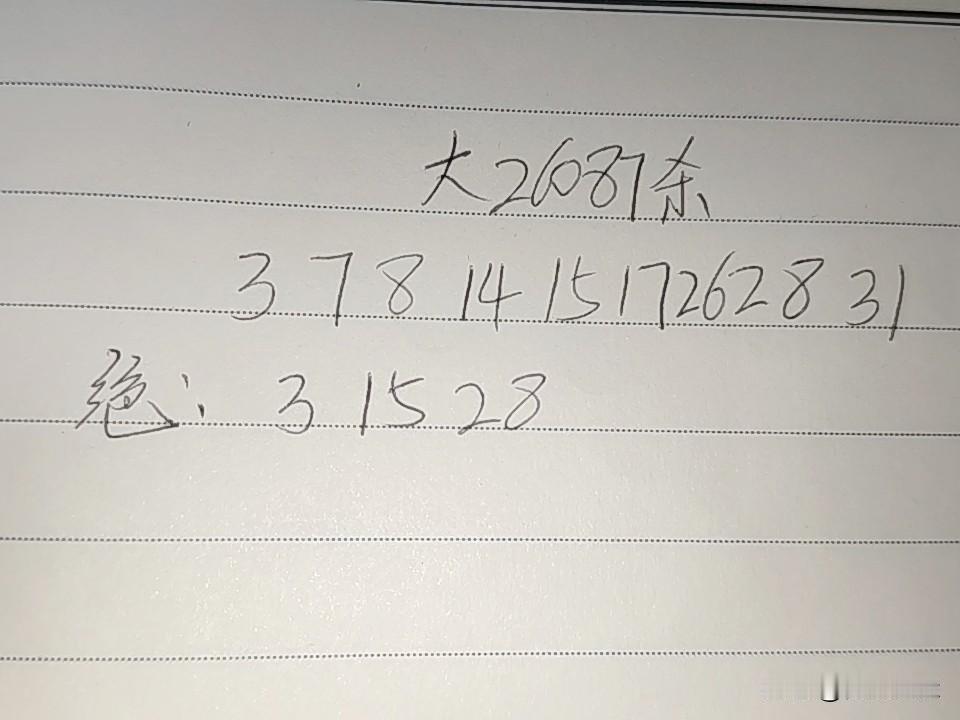 大26087杀
3 7 8 14 15 17 26 28 31
绝: 3 15 28